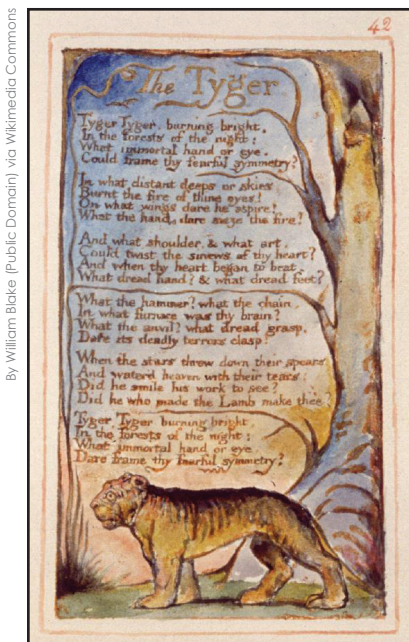 By William Blake (Public Domain) via Wikimedia Commons
42
The Tyger
Tyger Tyger, burning bright,
In the forests of the night;
What immortal hand or eye,
Could frame thy fearful symmetry?
In what distant deeps or skies
Burnt the fire of thine eyes!
On what wings dare he aspire!
What the hand, dare sieze the fire?
And what shoulder, & what art,
Could twist the sinews of thy heart?
And when thy heart began to beat,
What dread hand? & what dread feet?
What the hammer? what the chain,
In what furnace was thy brain?
What the anvil? what dread grasp,
Dare its deadly terrors clasp!
When the stars threw down their spears
And water'd heaven with their tears:
Did he smile his work to see?
Did he who made the Lamb make thee?
Tyger Tyger burning bright,
In the forests of the night:
What immortal hand or eye,
Dare frame thy fearful symmetry?